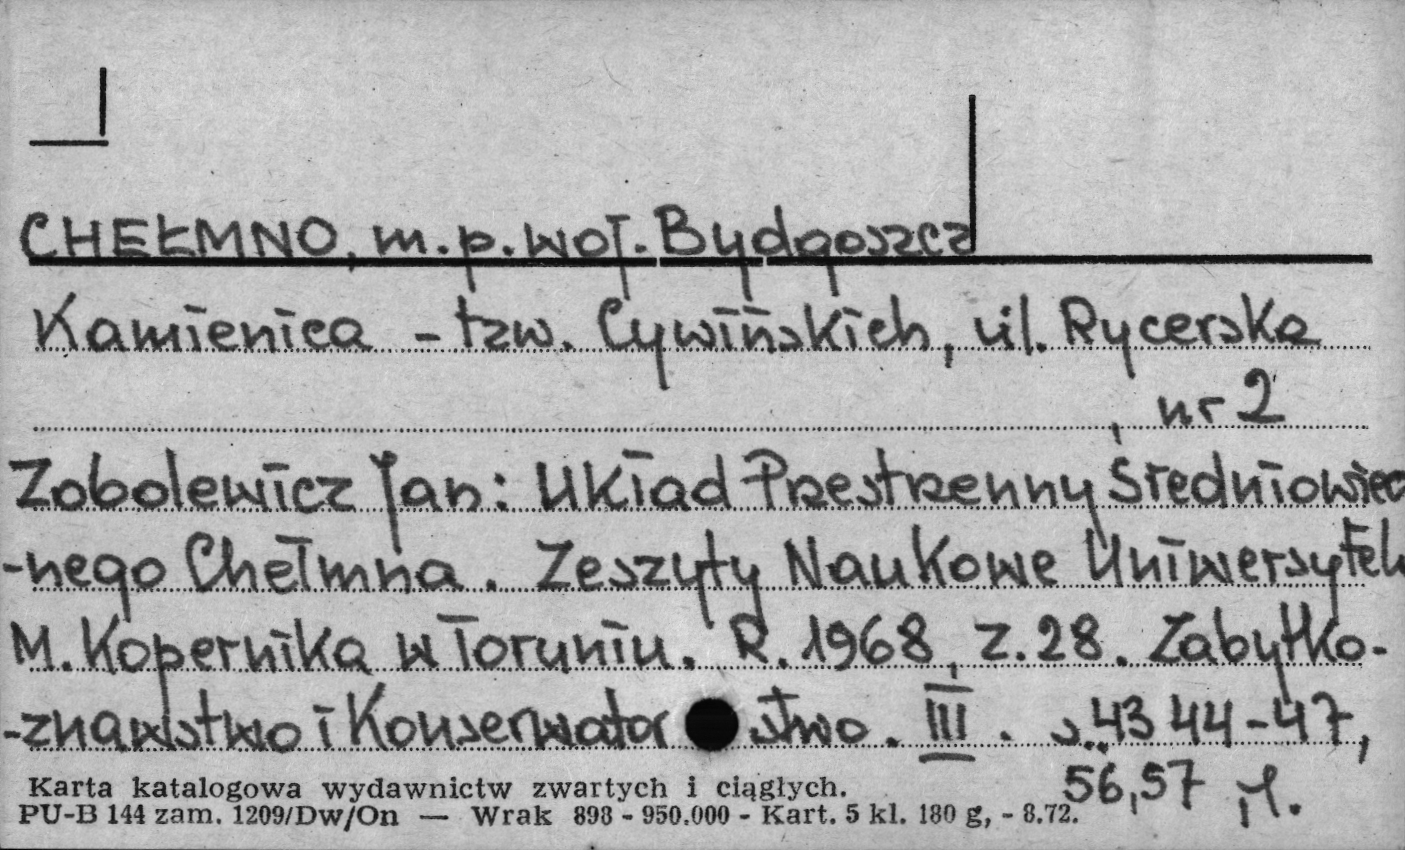 CHEŁMNO, m.p. woj. Bydgoszcz
Kamienica - tzw. Cywińskich, ul. Rycerska
, nr 2
Zobolewicz Jan: Układ Przestrzenny Średniowiecz
-nego Chełmna. Zeszyty Naukowe Uniwersytetu
M. Kopernika w Toruniu. R. 1968, Z. 28. Zabytko-
-znawstwo i Konserwatorstwo. III. s. 43 44-47,
56,57
Karta katalogowa wydawnictw zwartych i ciągłych.
PU-B 144 zam. 1209/Dw/On — Wrak 898 - 950.000 - Kart. 5 kl. 180 g, - 8.72.